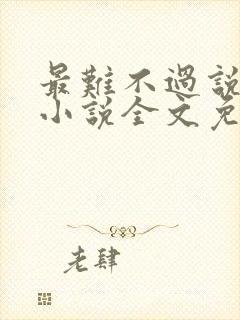 最難不過說
小說全文免
老肆